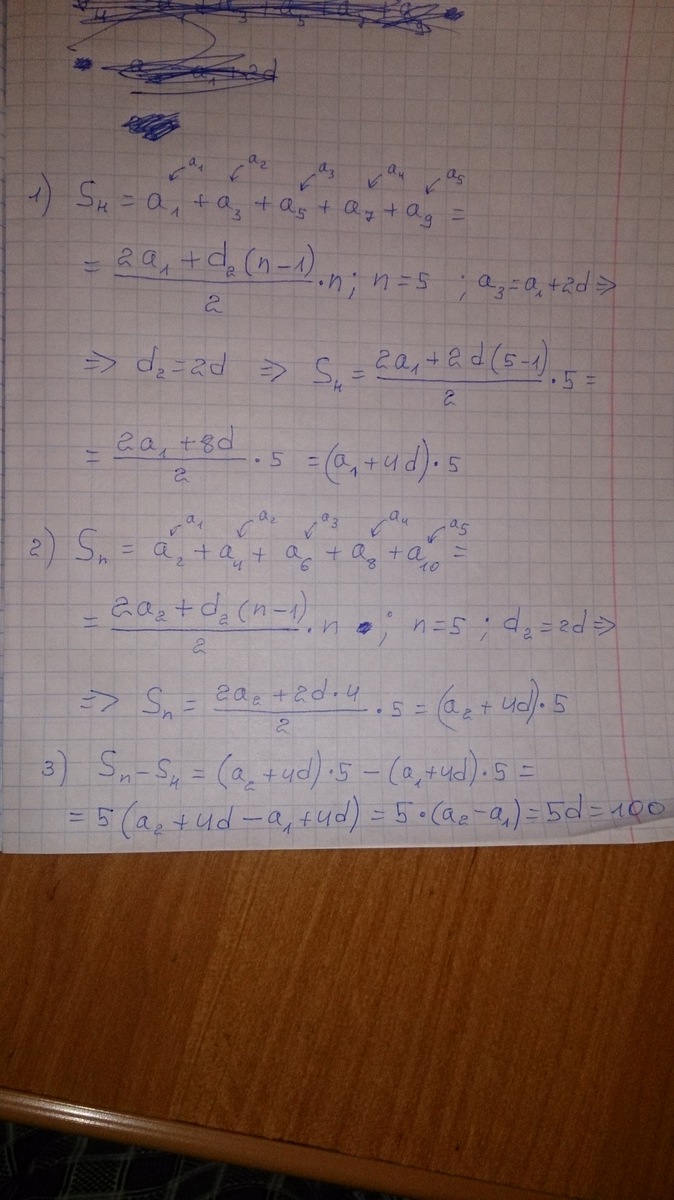 a₁ a₂ a₃ a₄ a₅
1) Sн = a₁ + a₃ + a₅ + a₇ + a₉ =
= (2a₁ + d₂(n-1))/2 · n; n = 5 ; a₃ = a₁ + 2d ⇒
⇒ d₂ = 2d ⇒ Sн = (2a₁ + 2d(5-1))/2 · 5 =
= (2a₁ + 8d)/2 · 5 = (a₁ + 4d) · 5
a₁ a₂ a₃ a₄ a₅
2) Sп = a₂ + a₄ + a₆ + a₈ + a₁₀ =
= (2a₂ + d₂(n-1))/2 · n ; n = 5 ; d₂ = 2d ⇒
⇒ Sп = (2a₂ + 2d·4)/2 · 5 = (a₂ + 4d) · 5
3) Sп - Sн = (a₂ + 4d) · 5 - (a₁ + 4d) · 5 =
= 5(a₂ + 4d - a₁ + 4d) = 5 · (a₂ - a₁) = 5d = 100